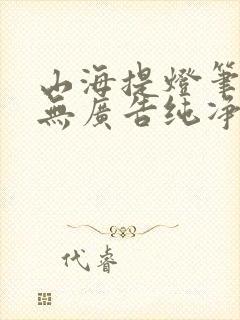 山海提燈筆
無廣告纯净
代睿